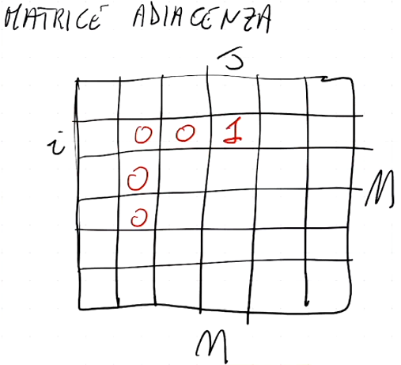 MATRICE ADIACENZA
J
i 0 0 1
0
M
0
M